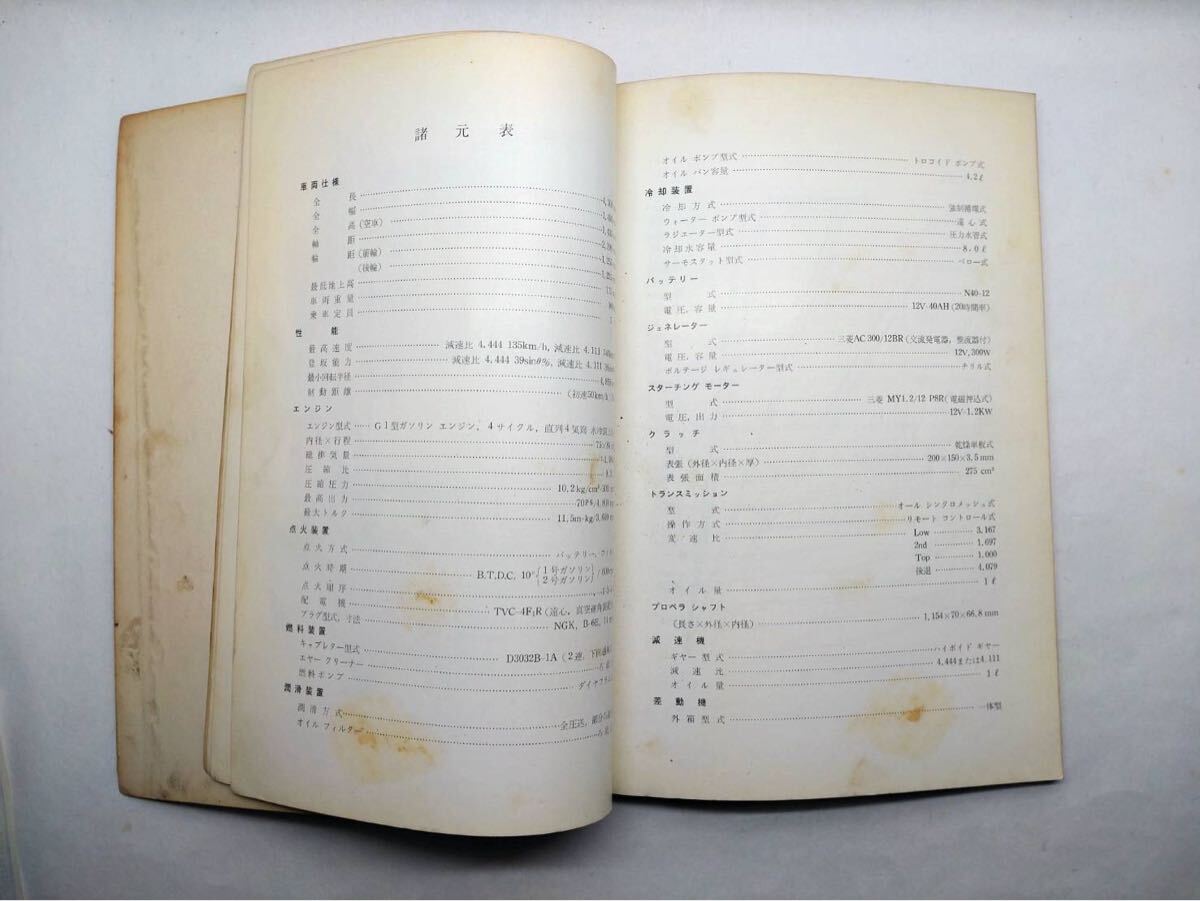 諸元表
車両仕様
全長
全幅
全高(空車)
軸距
輪距(前輪)
(後輪)
最低地上高
車両重量
乗車定員
性能
最高速度 減速比 4.444 135km/h, 減速比 4.111
登坂能力 減速比 4.444 39sinθ%, 減速比 4.111
最小回転半径
制動距離 (初速50km/h
エンジン
エンジン型式 G1型ガソリン エンジン, 4サイクル, 直列4気筒
内径×行程
総排気量
圧縮比
圧縮圧力 10.2kg/cm²
最高出力 70PS/4,800
最大トルク 11.5m-kg/3,600
点火装置
点火方式 バッテリー
点火時期 B.T.D.C. 10°{1号ガソリン
2号ガソリン}
点火順序
配電機 TVC-4F₁R(遠心, 真空
プラグ型式, 寸法 NGK, B-6E,
燃料装置
キャブレター型式 D3032B-1A (2連,
エヤー クリーナー
燃料ポンプ ダイヤフラム
潤滑装置
潤滑方式 全圧送,
オイル フィルター
オイル ポンプ型式 トロコイド ポンプ式
オイル パン容量 4.2ℓ
冷却装置
冷却方式 強制循環式
ウォーター ポンプ型式 遠心式
ラジエーター型式 圧力水管式
冷却水容量 8.0ℓ
サーモスタット型式 ベロー式
バッテリー
型式 N40-12
電圧, 容量 12V-40AH(20時間率)
ジェネレーター
型式 三菱AC300/12BR(交流発電器, 整流器付)
電圧, 容量 12V, 300W
ボルテージ レギュレーター型式 チリル式
スターチング モーター
型式 三菱 MY1.2/12 P8R(電磁押込式)
電圧, 出力 12V-1.2KW
クラッチ
型式 乾燥単板式
表張(外径×内径×厚) 200×150×3.5mm
表張面積 275 cm²
トランスミッション
型式 オール シンクロメッシュ式
操作方式 リモート コントロール式
変速比 Low 3.167
2nd 1.697
Top 1.000
後退 4.079
オイル量 1ℓ
プロペラ シャフト
(長さ×外径×内径) 1,154×70×66.8mm
減速機
ギヤー型式 ハイポイド ギヤー
減速比 4.444または4.111
オイル量 1ℓ
差動機
外箱型式 一体型